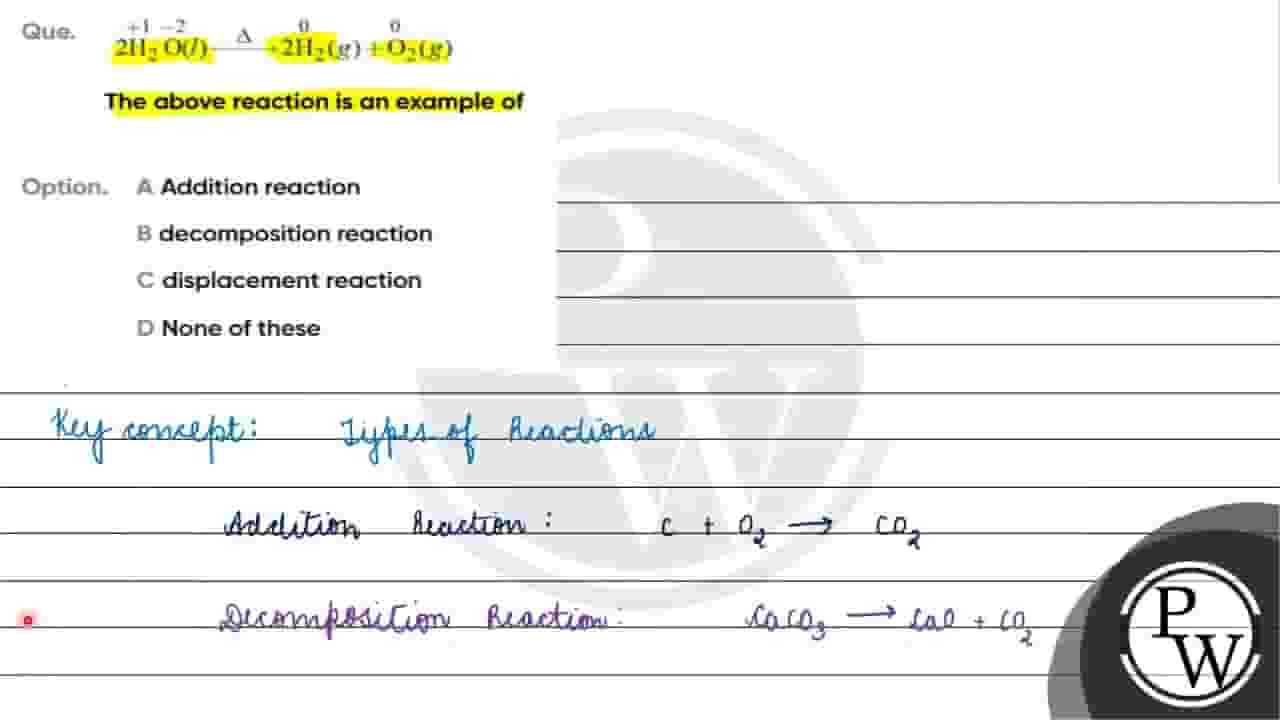 Que. +1 −2 0 0
2H₂O(l) —Δ→ 2H₂(g) + O₂(g)
The above reaction is an example of
Option. A Addition reaction
B decomposition reaction
C displacement reaction
D None of these
Key concept: Types of Reactions
Addition Reaction: C + O₂ → CO₂
Decomposition Reaction: CaCO₃ → CaO + CO₂
P
W